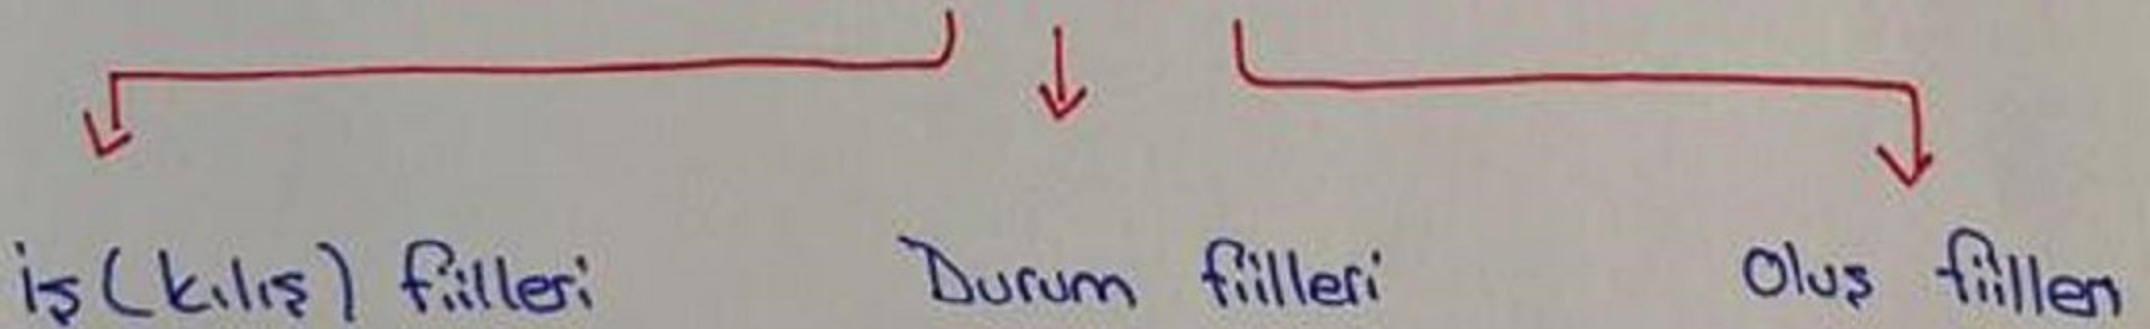 iş (kılış) fiilleri Durum fiilleri Oluş fiilleri